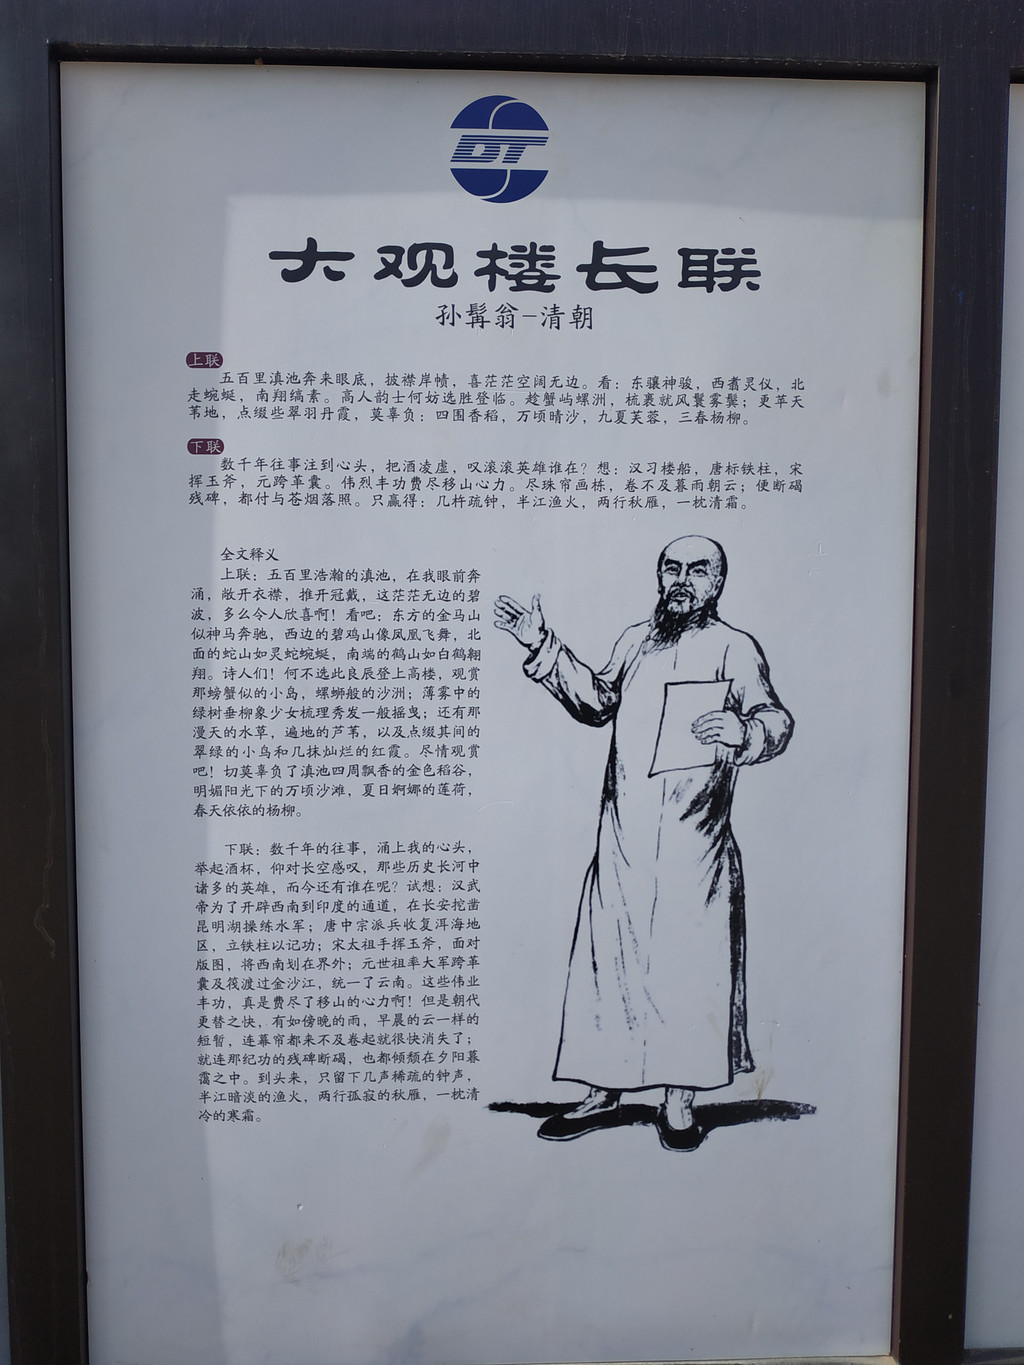 DT
大观楼长联
孙髯翁-清朝
上联
五百里滇池奔来眼底，披襟岸帻，喜茫茫空阔无边。看：东骧神骏，西翥灵仪，北
走蜿蜒，南翔缟素。高人韵士何妨选胜登临。趁蟹屿螺洲，梳裹就风鬟雾鬓；更苹天
苇地，点缀些翠羽丹霞，莫辜负：四围香稻，万顷晴沙，九夏芙蓉，三春杨柳。
下联
数千年往事注到心头，把酒凌虚，叹滚滚英雄谁在？想：汉习楼船，唐标铁柱，宋
挥玉斧，元跨革囊。伟烈丰功费尽移山心力。尽珠帘画栋，卷不及暮雨朝云；便断碣
残碑，都付与苍烟落照。只赢得：几杵疏钟，半江渔火，两行秋雁，一枕清霜。
全文释义
上联：五百里浩瀚的滇池，在我眼前奔
涌，敞开衣襟，推开冠戴，这茫茫无边的碧
波，多么令人欣喜啊！看吧：东方的金马山
似神马奔驰，西边的碧鸡山像凤凰飞舞，北
面的蛇山如灵蛇蜿蜒，南端的鹤山如白鹤翱
翔。诗人们！何不选此良辰登上高楼，观赏
那螃蟹似的小岛，螺蛳般的沙洲；薄雾中的
绿树垂柳象少女梳理秀发一般摇曳；还有那
漫天的水草，遍地的芦苇，以及点缀其间的
翠绿的小鸟和几抹灿烂的红霞。尽情观赏
吧！切莫辜负了滇池四周飘香的金色稻谷，
明媚阳光下的万顷沙滩，夏日婀娜的莲荷，
春天依依的杨柳。
下联：数千年的往事，涌上我的心头，
举起酒杯，仰对长空感叹，那些历史长河中
诸多的英雄，而今还有谁在呢？试想：汉武
帝为了开辟西南到印度的通道，在长安挖凿
昆明湖操练水军；唐中宗派兵收复洱海地
区，立铁柱以记功；宋太祖手挥玉斧，面对
版图，将西南划在界外；元世祖率大军跨革
囊及筏渡过金沙江，统一了云南。这些伟业
丰功，真是费尽了移山的心力啊！但是朝代
更替之快，有如傍晚的雨，早晨的云一样的
短暂，连幕帘都来不及卷起就很快消失了；
就连那纪功的残碑断碣，也都倾颓在夕阳暮
霭之中。到头来，只留下几声稀疏的钟声，
半江暗淡的渔火，两行孤寂的秋雁，一枕清
冷的寒霜。